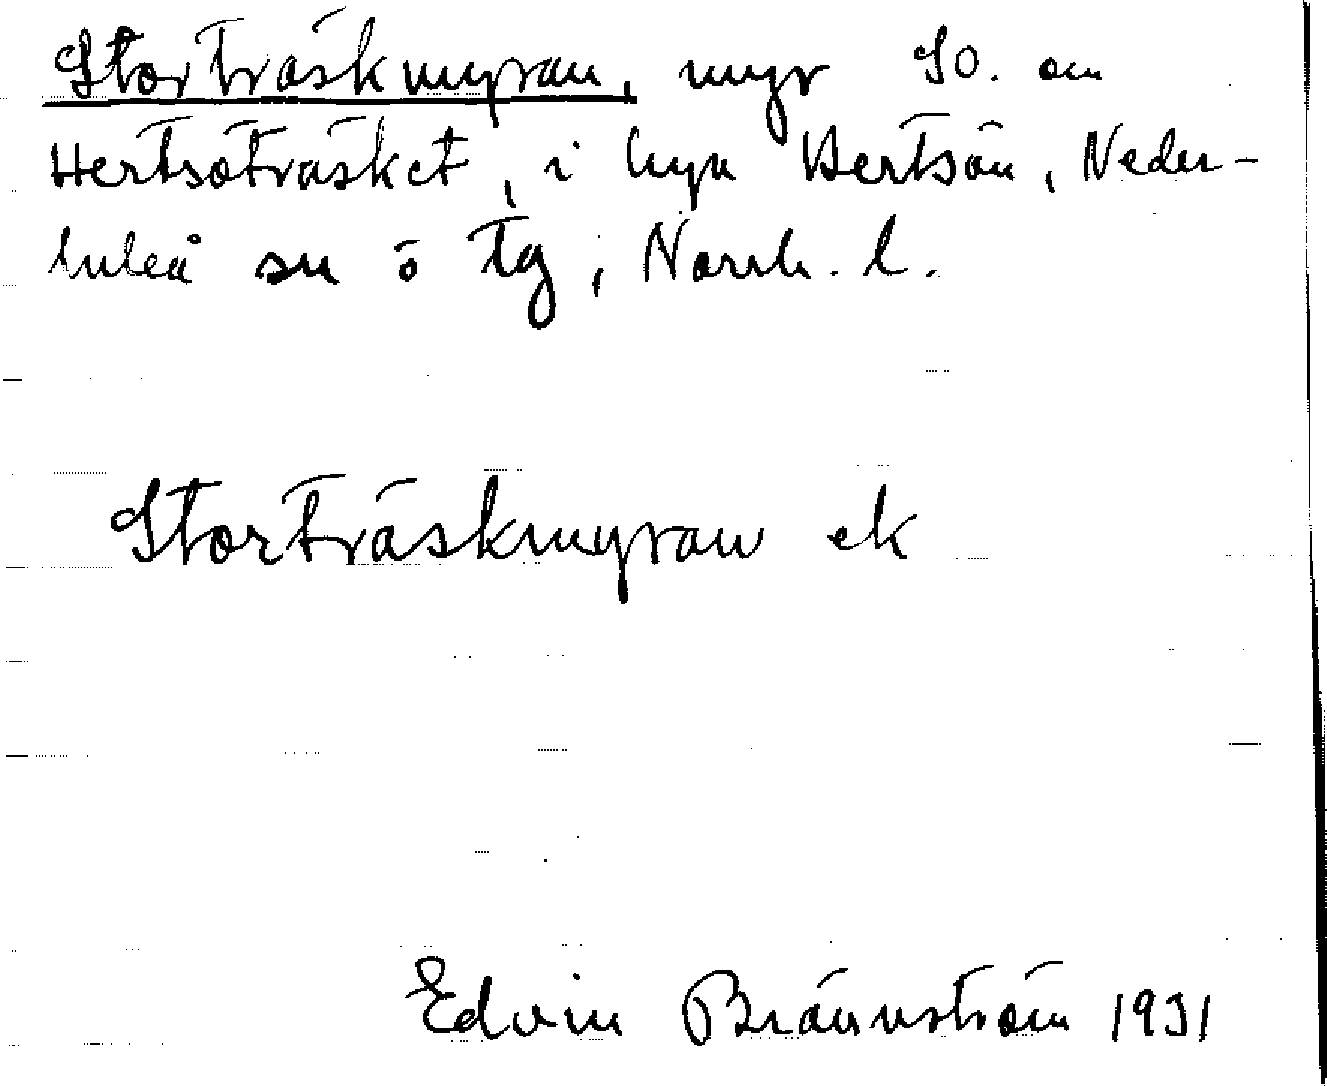 Storträskmyran, myr SO. om
Hertsöträsket, i byn Hertsön, Neder-
luleå sn ö tg, Norrb. l.
Storträskmyran ek
Edvin Brännström 1931